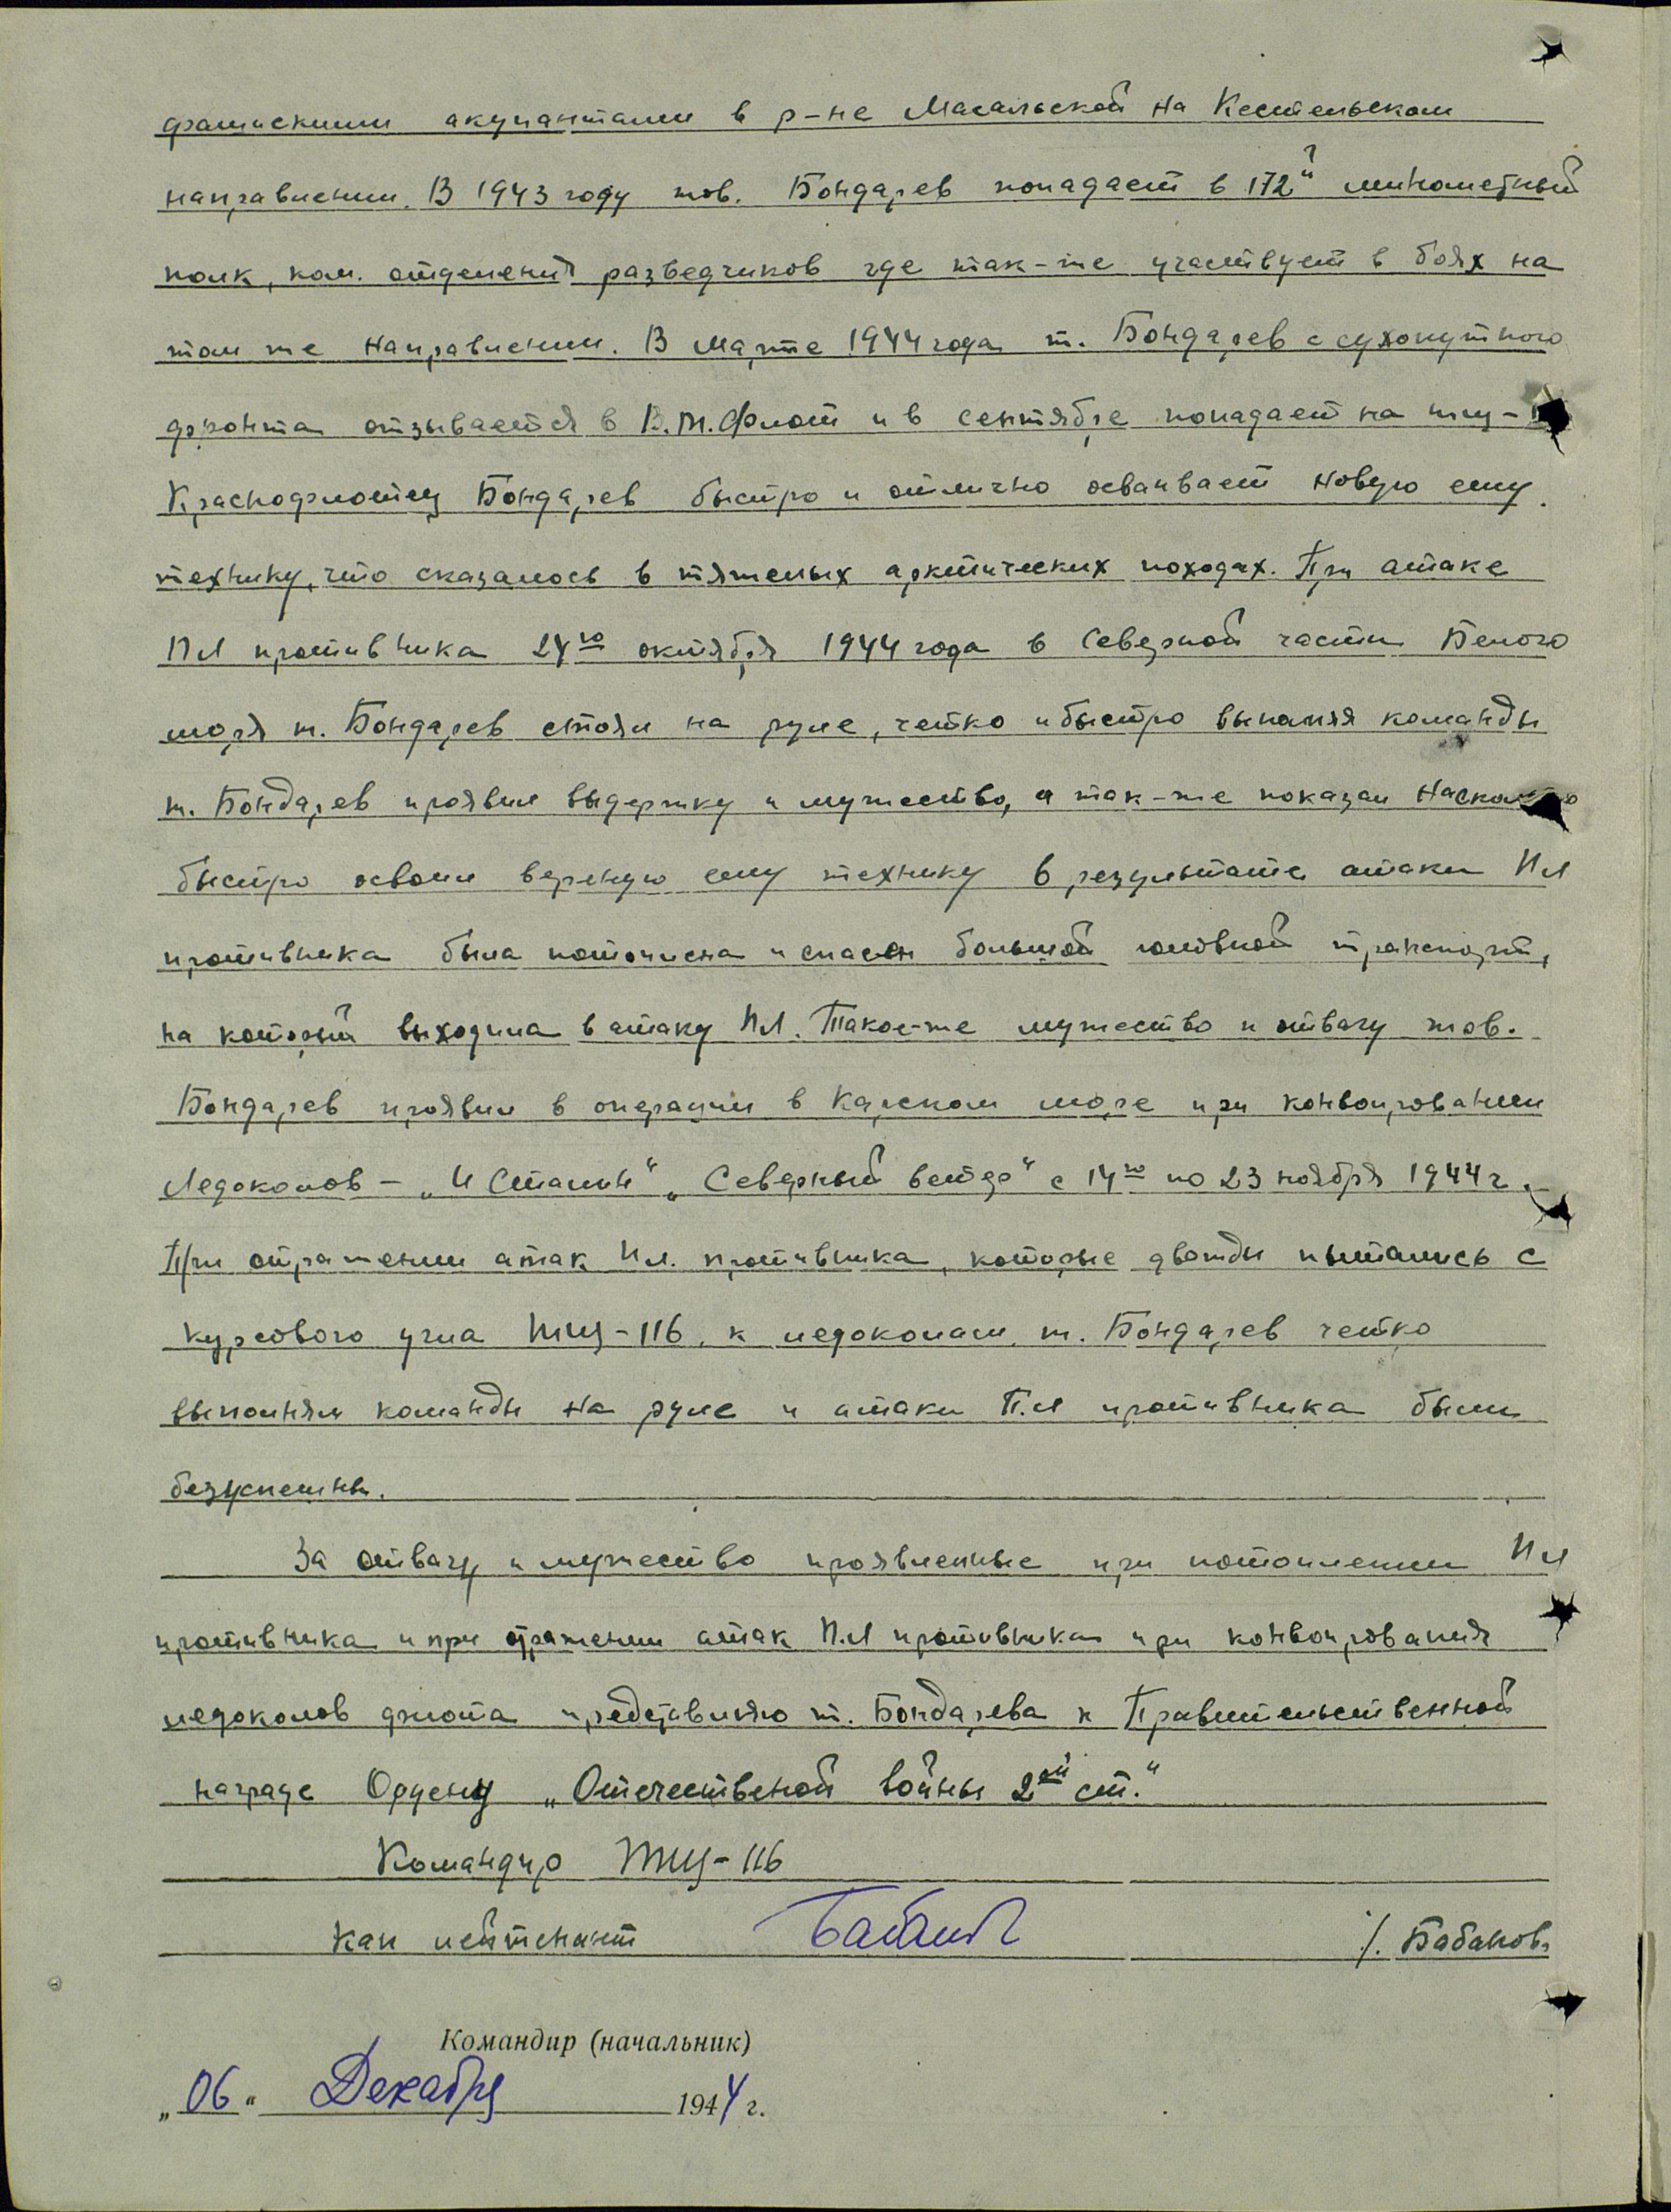 фашискими акупантами в р-не Масальской на Кестельском
направлении. В 1943 году тов. Бондарев попадает в 172й минометный
полк, ком. отделения разведчиков где так-же участвует в боях на
том же направлении. В марте 1944 года т. Бондарев с сухопутного
фронта отзывается в В.М.Флот и в сентябре попадает на тщ-
Краснофлотец Бондарев быстро и отлично осваивает новую ему
технику, что сказалось в тяжелых арктических походах. При атаке
ПЛ противника 24го октября 1944 года в северной части Белого
моря т. Бондарев стоял на руле, четко и быстро выполняя команды
т. Бондарев проявил выдержку и мужество, а так-же показал насколько
быстро освоил вереную ему технику в результате атаки ПЛ
противника была потоплена и спасен большой головной транспорт,
на который выходила в атаку ПЛ. Такое-же мужество и отвагу тов.
Бондарев проявил в операции в Карском море при конвоировании
Ледоколов – „И Сталин" „Северный ветер" с 14го по 23 ноября 1944 г.
При отражении атак Пл. противника, которые дважды пытались с
курсового угла тщ-116, к ледоколам, т. Бондарев четко
выполнял команды на руле и атаки П.Л противника были
безуспешны.
За отвагу и мужество проявленные при потоплении ПЛ
противника и при отражении атак П.Л противника при конвоирования
ледоколов флота представляю т. Бондарева к Правительственной
награде Ордену „Отечественой войны 2ой ст."
Командир тщ-116
кап лейтенант /. Бабанов.
Командир (начальник)
„06" Декабря 1944 г.